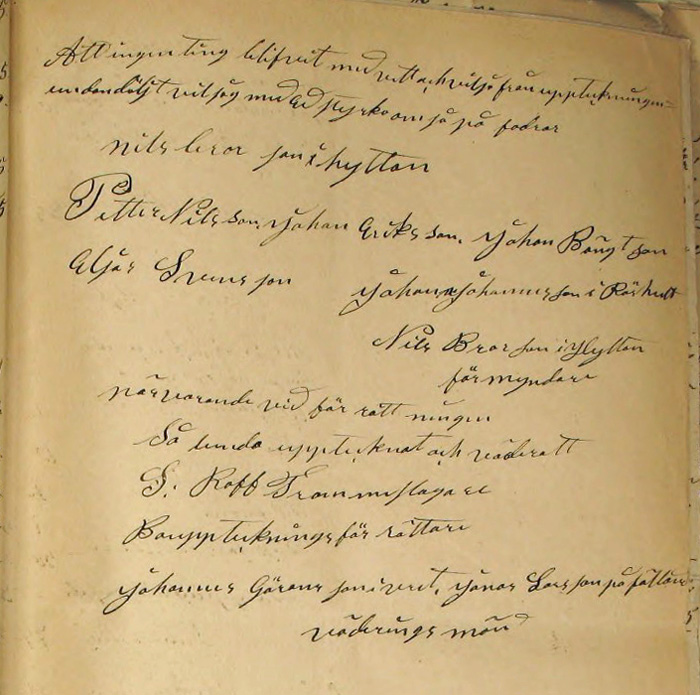 Att ingen ting blifvit med vett och vilje från uppteckningen
undandöljt vil jag med Ed styrka om så på fodras
nils bror son i hyttan
Petter Nils son, Johan Eriks son, Johan Bengt son
Eljas Svens son Johan Johannes son i Röshult
Nils Bror son i Hyttan
förmyndare
närvarande vid för rätt ningen
Så lunda upptecknat och värderatt
S: Raff Trommslagare
Bouppteknings för rättare
Johannes Görans son i Jonas Lars son på
värderings män